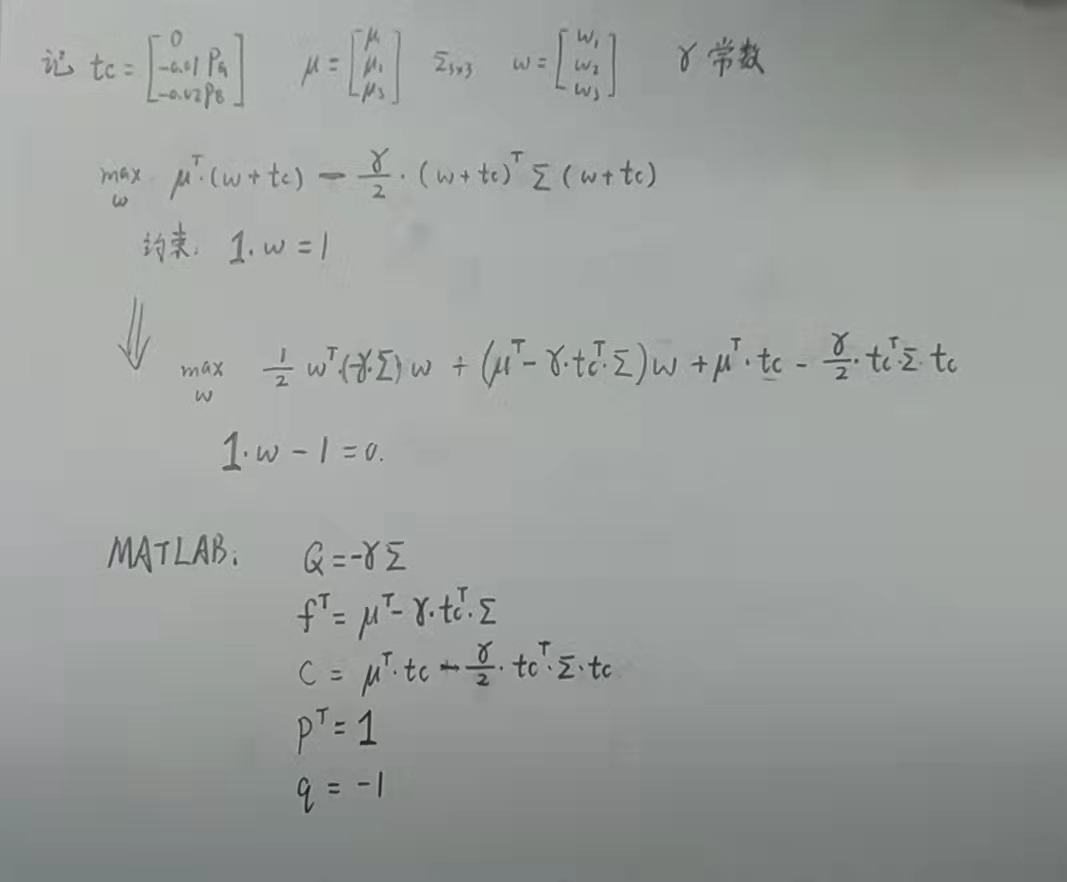 记 tc = [0 -0.01 PA -0.02 PB] μ = [μ μ₁ μ₃] Σ₃ₓ₃ w = [w₁ w₂ w₃] γ 常数
max_w μᵀ·(w + tc) - γ/2 · (w + tc)ᵀ Σ (w + tc)
约束: 1·w = 1
⇓ max_w 1/2 wᵀ·(-γ·Σ) w + (μᵀ - γ·tcᵀ·Σ) w + μᵀ·tc - γ/2 · tcᵀ·Σ·tc
1·w - 1 = 0.
MATLAB: Q = -γΣ
fᵀ = μᵀ - γ·tcᵀ·Σ
C = μᵀ·tc - γ/2 · tcᵀ·Σ·tc
pᵀ = 1
q = -1